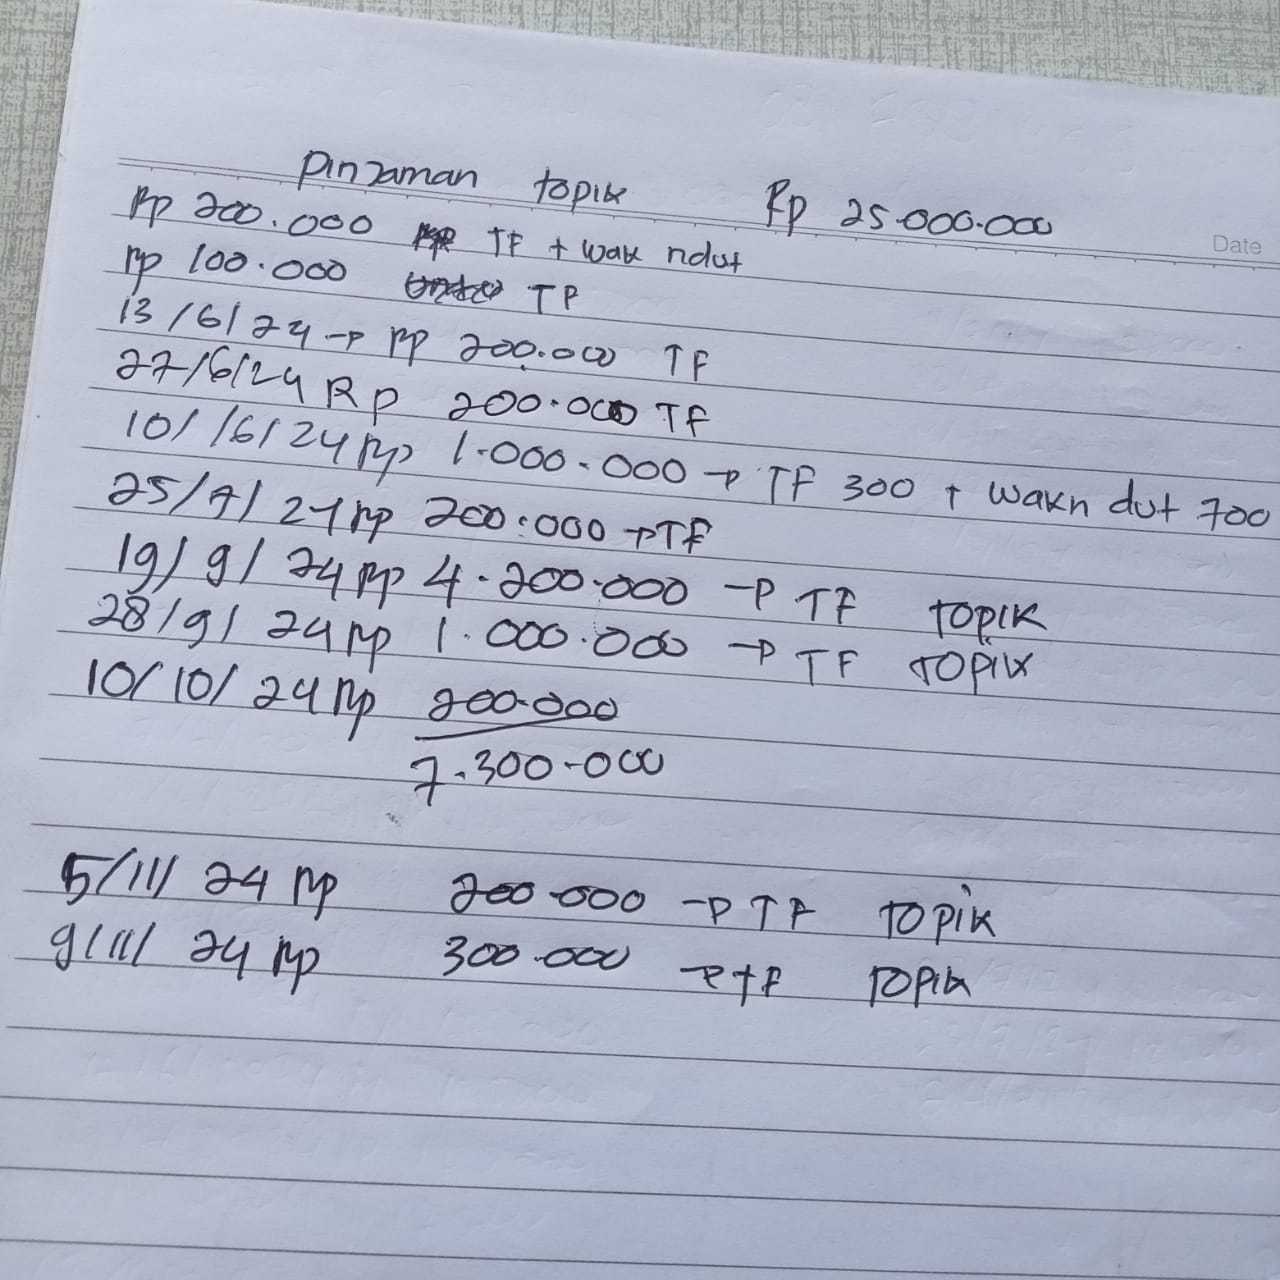 Pinjaman topik Rp 25.000.000
Date
Rp 200.000 TF + wak ndut
Rp 100.000 TF
13/6/24 → Rp 200.000 TF
27/6/24 Rp 200.000 TF
10/ /6/24 Rp 1.000.000 → TF 300 + wakn dut 700
25/7/24 Rp 200.000 → TF
19/9/24 Rp 4.200.000 → TF TOPIK
28/9/24 Rp 1.000.000 → TF TOPIK
10/10/24 Rp 200.000
7.300.000
5/11/24 Rp 200.000 → TF TOPIK
9/11/24 Rp 300.000 → TF TOPIK